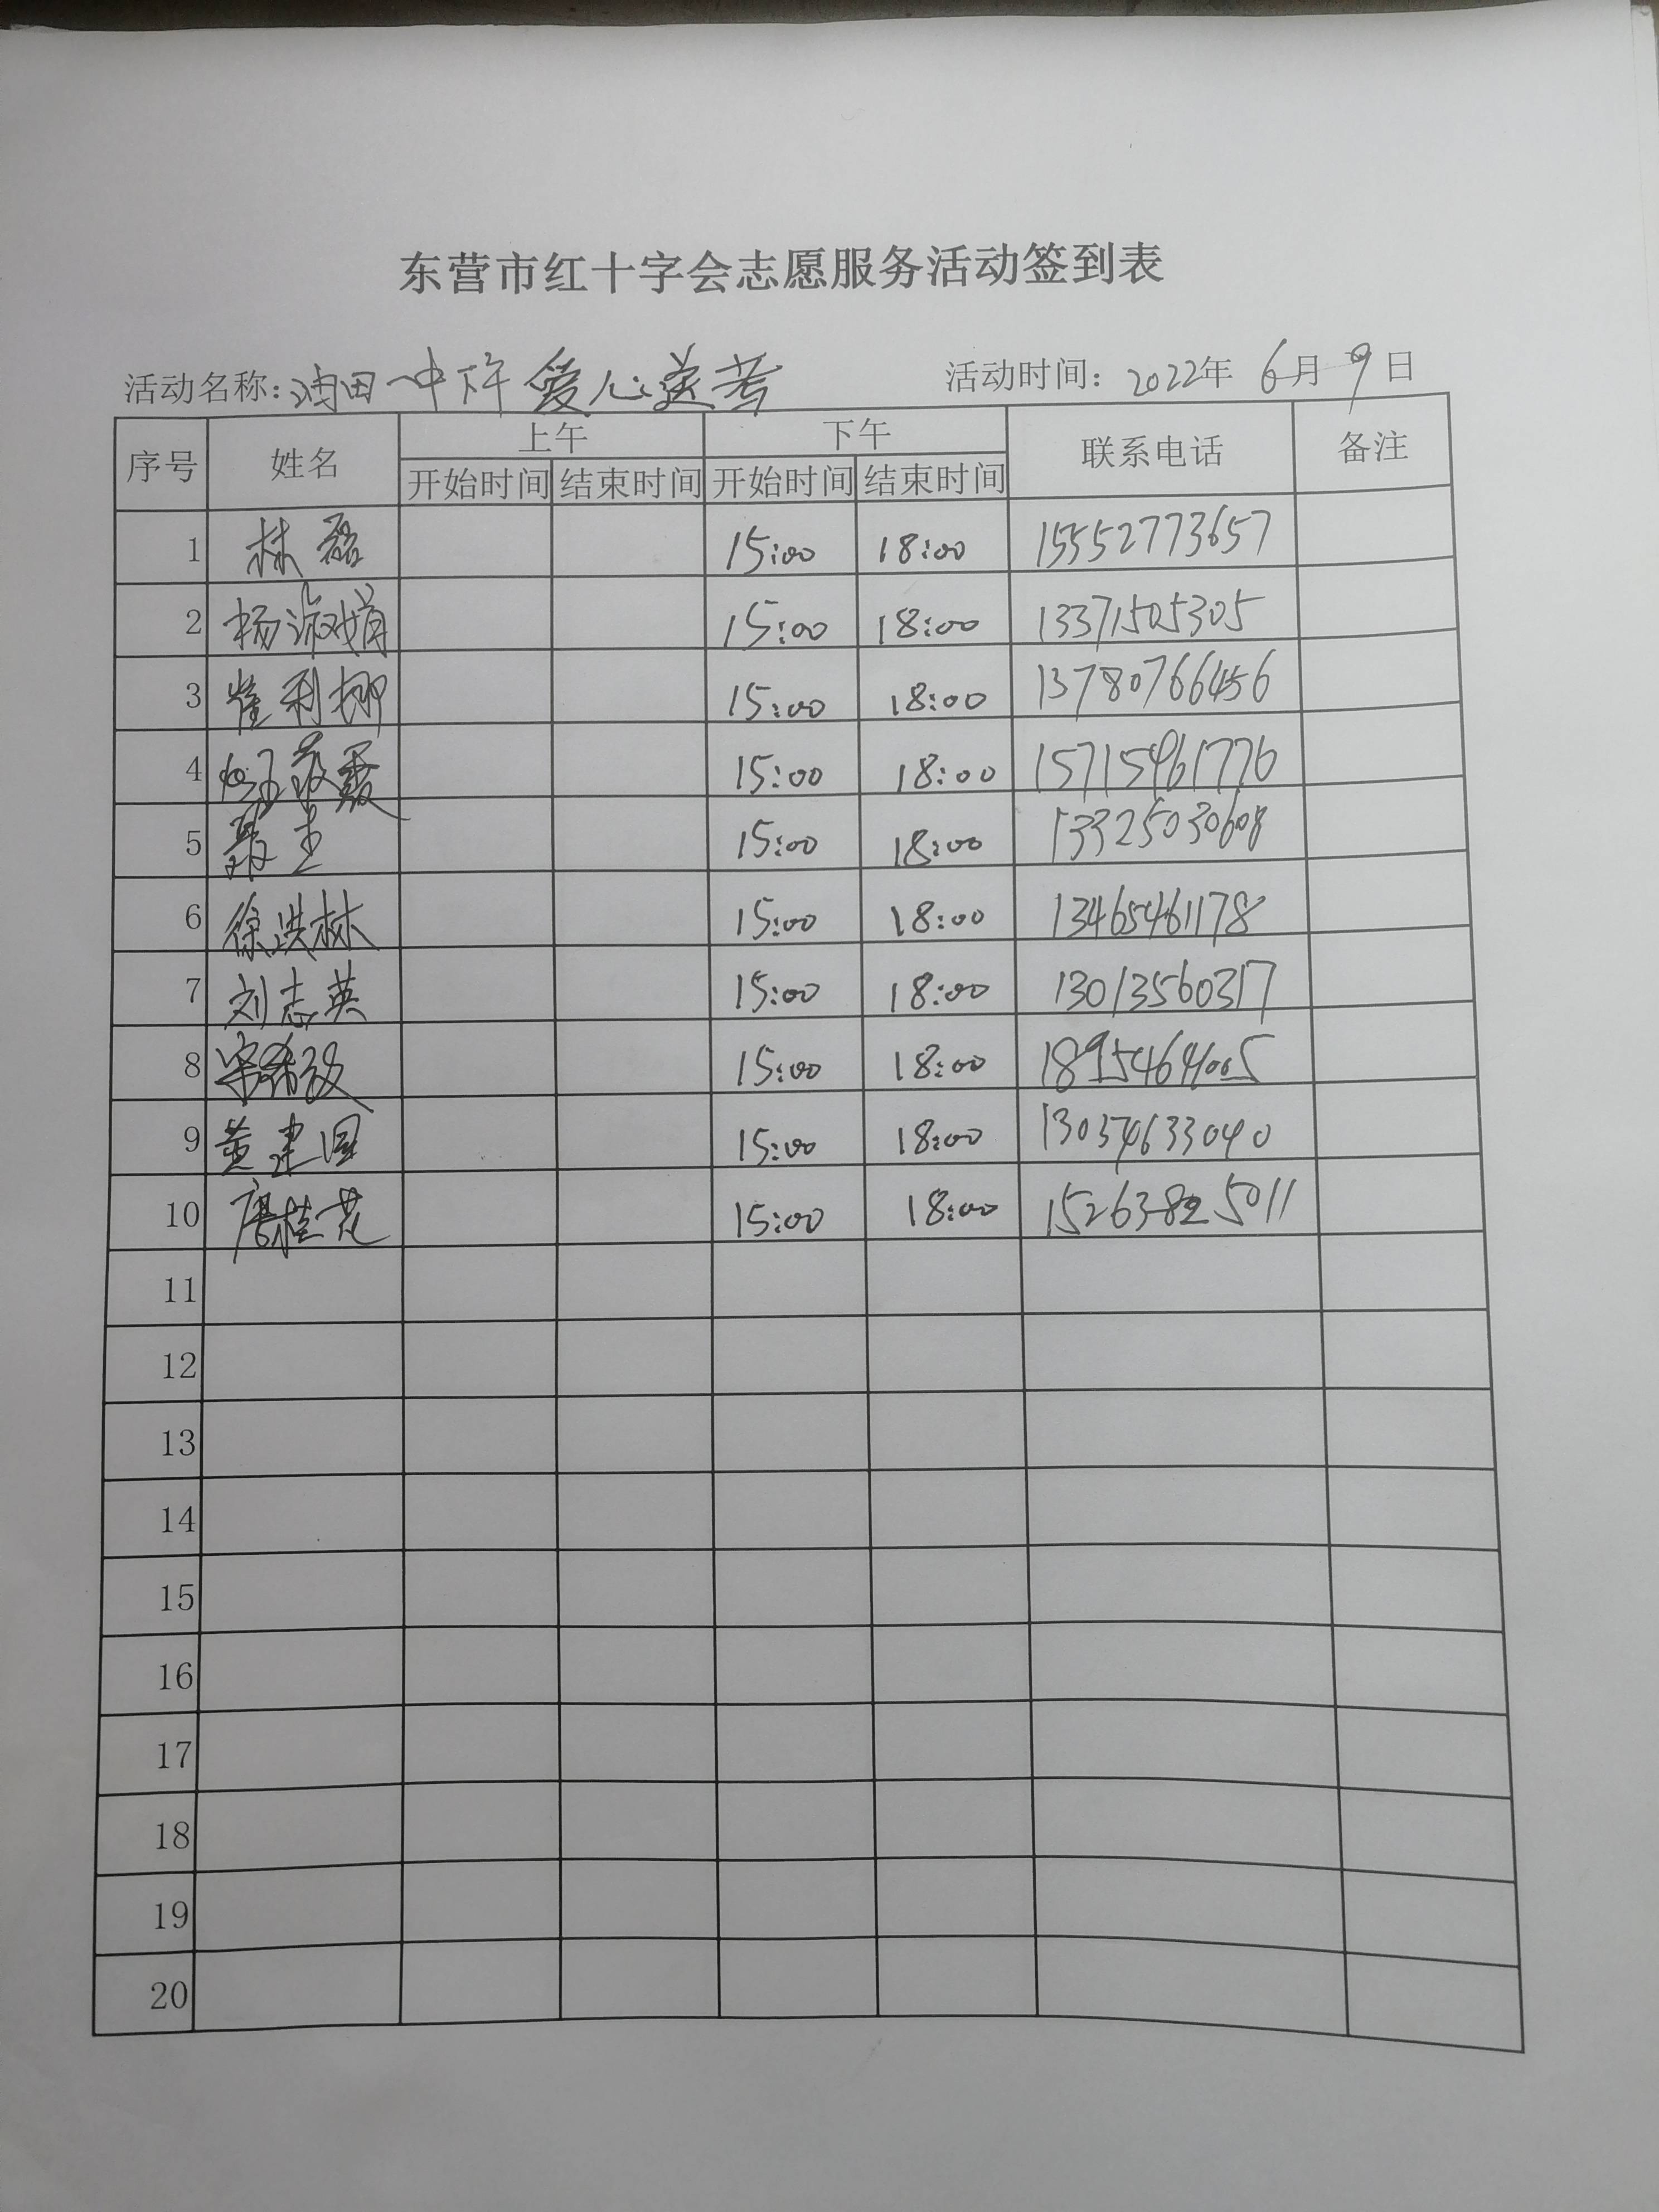 东营市红十字会志愿服务活动签到表
活动名称:油田一中下午爱心送考 活动时间: 2022年 6月 9日
序号 姓名 上午 下午 联系电话 备注
开始时间 结束时间 开始时间 结束时间
1 林磊 15:00 18:00 15552773657
2 杨淑娟 15:00 18:00 13371505305
3 崔利娜 15:00 18:00 13780766456
4 15:00 18:00 15715461770
5 15:00 18:00 13325030608
6 徐洪林 15:00 18:00 13465461178
7 刘志英 15:00 18:00 13013560317
8 15:00 18:00 18954641005
9 黄建国 15:00 18:00 13054633040
10 唐桂花 15:00 18:00 15263825011
11
12
13
14
15
16
17
18
19
20